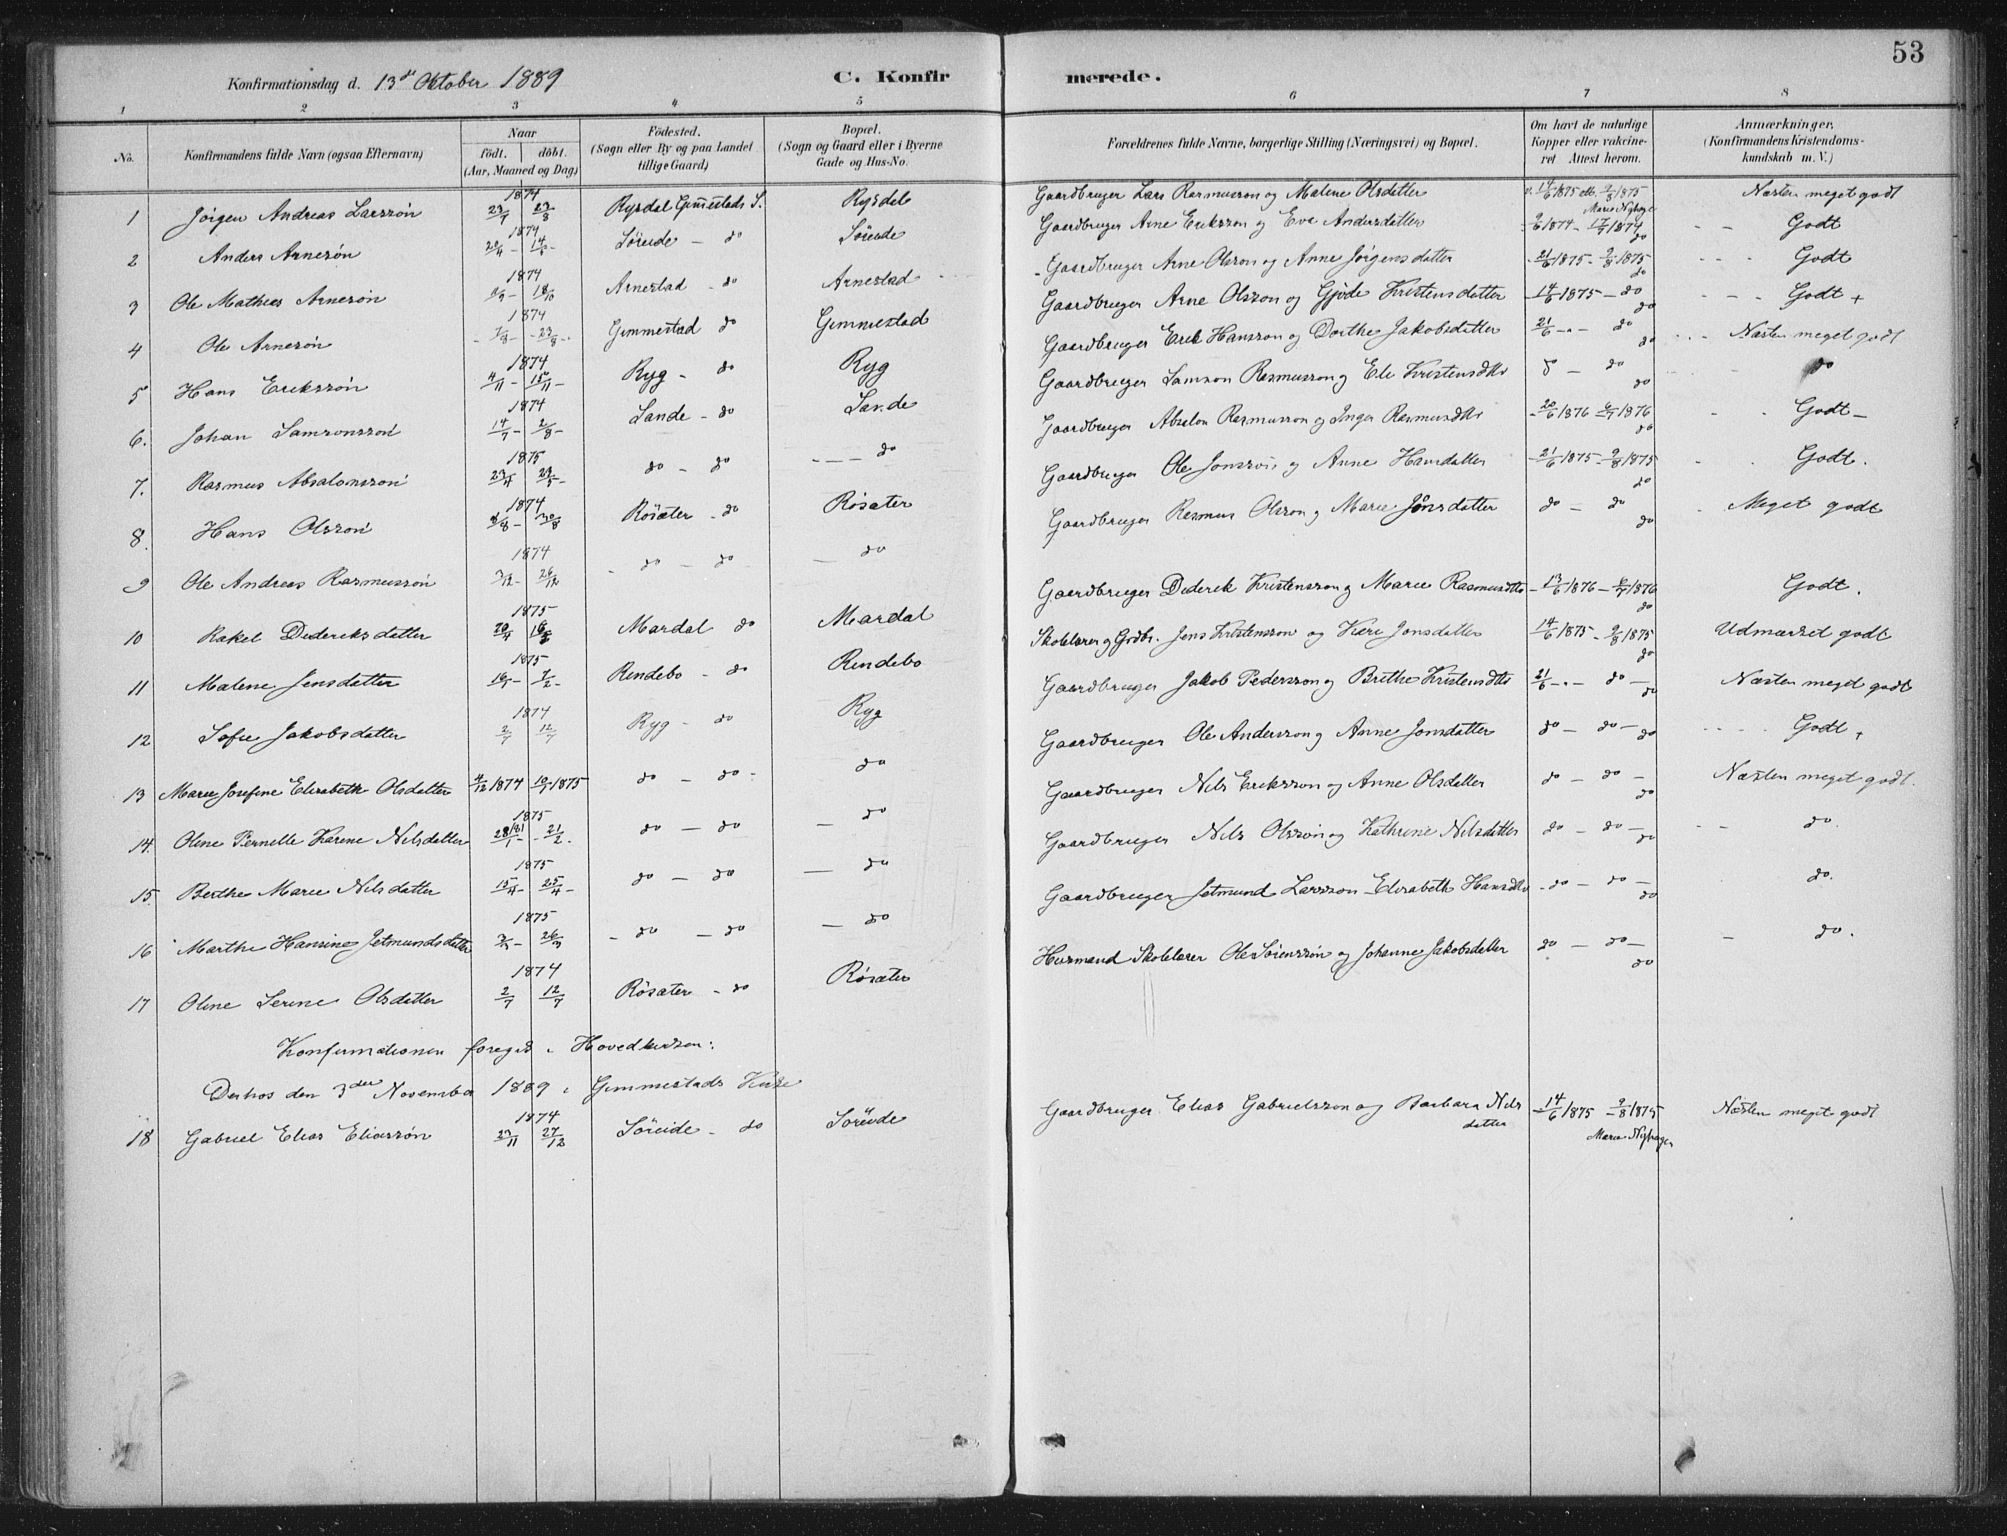 53
Konfirmationsdag d. 13de Oktober 1889 C. Konfirmerede.
1 2 3 4 5 6 7 8
No. Konfirmandens fulde Navn (ogsaa Efternavn) Naar födt. döbt. (Aar, Maaned og Dag) Födested. (Sogn eller By og paa Landet tillige Gaard) Bopæl. (Sogn og Gaard eller i Byerne Gade og Hus-No. Forældrenes fulde Navne, borgerlige Stilling (Næringsvei) og Bopæl. Om havt de naturlige Kopper eller vakcineret Attest herom. Anmærkninger. (Konfirmandens Kristendomskundskab m. V.)
1 Jörgen Andreas Larssön 1874 23/7 23/8 Rysdal Gimmestads S. Rysdal Gaardbruger Lars Rasmusson og Malene Olsdatter 9/8 1875 Marie Nyhagen Næsten meget godt
2 Anders Arnesön 1874 Söreide - do Söreide Gaardbruger Arne Eriksson og Eva Andersdatter 1874 do Godt
3 Ole Mathias Arnesön 1874 18/10 Arnestad - do Arnestad Gaardbruger Arne Olsson og Anne Jörgensdatter 21/6 1875 - 9/8 1875 do Godt
4 Ole Arnesön 1874 7/8 - 23/8 Gimmestad do Gimmestad Gaardbruger Arne Olsson og Gjöde Kristensdatter 14/6 1875 - do do Godt +
5 Hans Erikssön 1874 4/11 - 15/11 Ryg - do Ryg Gaardbruger Erik Hansson og Dorthe Jakobsdatter 21/6 - do do Næsten meget godt
6. Johan Samsonssön 1874 14/7 - 2/8 Sande - do Sande Gaardbruger Samson Rasmusson og Eli Kristensdtr do - do do do
7. Rasmus Absalonsson 1875 23/4 23/5 do - do do Gaardbruger Absalon Rasmusson og Inger Rasmusdtr 20/6 1876 6/7 1876 do Godt
8. Hans Olsson 1874 30/8 Rösæter - do Rösæter Gaardbruger Ole Jonsson og Anne Hansdatter 21/6 1875 - 9/8 1875 do Godt.
9 Ole Andreas Rasmussön 1874 3/12 - 26/12 do - do do Gaardbruger Rasmus Olsson og Marie Jönsdatter do - do do Meget godt
10 Rakel Dideriksdatter 1875 20/4 Mardal do Mardal Gaardbruger Diderik Kristensson og Marie Rasmusdtr 13/6 1876 - 6/7 1876 do Godt.
11 Malene Jensdatter 1875 7/2 Rendebo - do Rendebo Skolelærer og Grdbr. Jens Kristensson og Kari Jonsdatter 14/6 1875 - 9/8 1875 do Udmærket godt
12 Sofie Jakobsdatter 1874 2/7 12/7 Ryg - do Ryg Gaardbruger Jakob Pedersson og Brithe Kristensdtr 21/6 - do do Næsten meget godt
13 Marie Josefine Elisabeth Olsdatter 4/12 1874 10/1 1875 do - do do Gaardbruger Ole Andersson og Anne Jonsdatter do - do - do Godt +
14. Oline Pernelle Karine Nilsdatter 1875 21/2 do - do do Gaardbruger Nils Eriksson og Anne Olsdatter do - do - do Næsten meget godt.
15. Berthe Marie Nilsdatter 1875 15/4 - 25/4 do - do do Gaardbruger Nils Olsson og Kathrine Nilsdatter do - do - do do.
16 Marthe Hansine Jetmundsdatter 1875 26/3 do - do do Gaardbruger Jetmund Larsson Elisabeth Hansdtr do - do - do do.
17 Oline Serine Olsdatter 1874 2/7 12/7 Rösæter - do Rösæter Husmand Skolelærer Ole Sörenssön og Johanne Jakobsdatter do - do - do do.
Konfirmationen foregik i Hovedkirken:
Derhos den 3die November 1889 i Gimmestads Kirke
18 Gabriel Elias Eliassön 1874 23/11 27/12 Söreide - do Söreide Gaardbruger Elias Gabrielsson og Barbara Nilsdatter 14/6 1875 9/8 1875 Marie Nyhagen Næsten meget godt